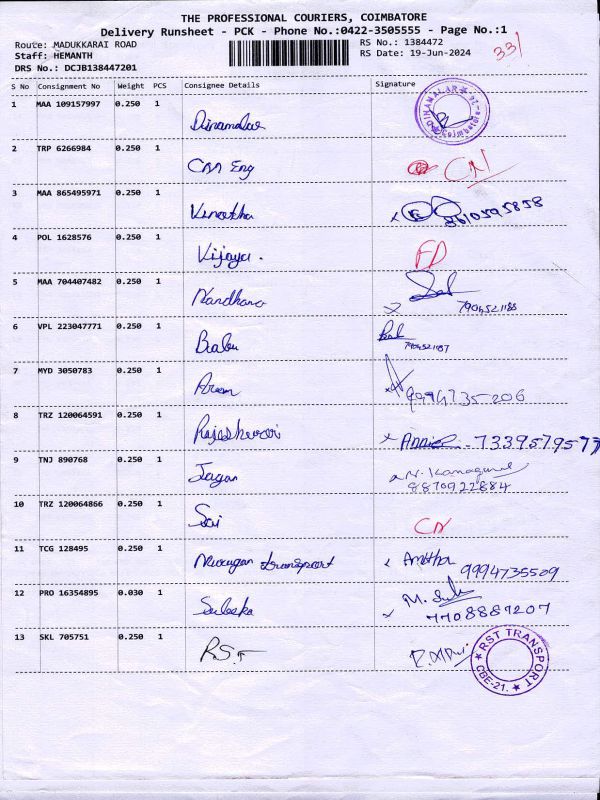 THE PROFESSIONAL COURIERS, COIMBATORE
Delivery Runsheet - PCK - Phone No.:0422-3505555 - Page No.:1
Route: MADUKKARAI ROAD
RS No.: 1384472
331
Staff: HEMANTH
RS Date: 19-Jun-2024
DRS No.: DCJB138447201
S No Consignment No Weight PCS Consignee Details Signature
1 MAA 109157997 0.250 1 Dinamalar DINAMALAR Coimbatore
2 TRP 6266984 0.250 1 CM Eng CN
3 MAA 865495971 0.250 1 Vinotha 8610595858
4 POL 1628576 0.250 1 Vijaya. FD
5 MAA 704407482 0.250 1 Nandhana
7904521188
6 VPL 223047771 0.250 1 Babu
7904521187
7 MYD 3050783 0.250 1 Arun 9994735206
8 TRZ 120064591 0.250 1 Rajeshwari 7339579577
9 TNJ 890768 0.250 1 Jagan
8870922884
10 TRZ 120064866 0.250 1 Sai CN
11 TCG 128495 0.250 1 Murugan transport Amutha
9994735509
12 PRO 16354895 0.030 1
7708887207
13 SKL 705751 0.250 1 R.S.T RST TRANSPORT CBE-21.